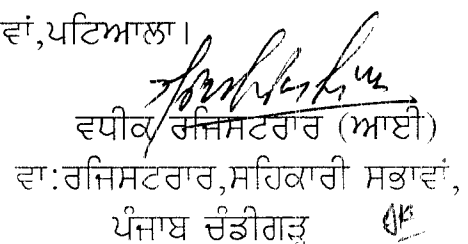 ਵਾਂ,ਪਟਿਆਲਾ।
ਵਧੀਕ ਰਜਿਸਟਰਾਰ (ਆਈ)
ਵਾ:ਰਜਿਸਟਰਾਰ,ਸਹਿਕਾਰੀ ਸਭਾਵਾਂ,
ਪੰਜਾਬ ਚੰਡੀਗੜ੍ਹ